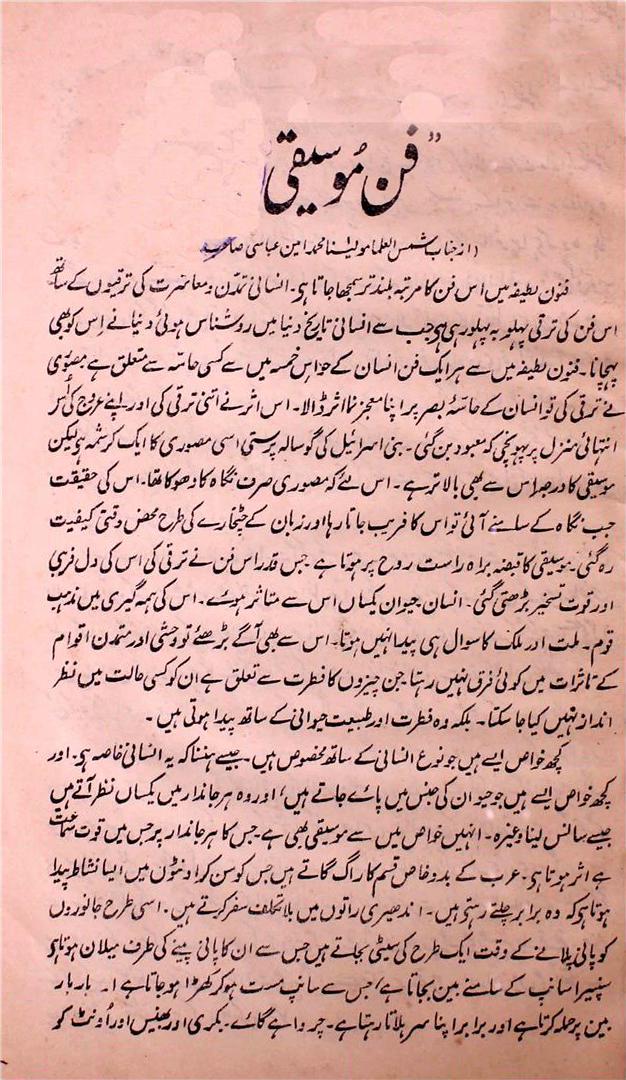 "فن مُوسیقی"
(از جناب شمس العلما مولینا محمد امین عباسی صاحب)
فنون لطیفہ میں اس فن کا مرتبہ بلند تر سمجھا جاتا ہی۔ انسانی تمدّن و معاشرت کی ترقیوں کے ساتھ
اس فن کی ترقی پہلو بہ پہلو رہی ہی جب سے انسانی تاریخ دنیا میں روشناس ہوئی دنیا نے اِس کو بھی
پہچانا۔ فنون لطیفہ میں سے ہر ایک فن انسان کے حواس خمسہ میں سے کسی حاسّہ سے متعلق ہے مصوّری
نے ترقی کی تو انسان کے حاسّۂ بصر پر اپنا معجز نما اثر ڈالا۔ اس اثر نے اتنی ترقی کی اور اپنے عروج کی اُس
انتہائی منزل پر پہونچی کہ معبود بن گئی۔ بنی اسرائیل کی گوسالہ پرستی اسی مصوری کا ایک کرشمہ ہی لیکن
موسیقی کا درجہ اس سے بھی بالا تر ہے۔ اس لئے کہ مصوری صرف نگاہ کا دھوکا تھا۔ اس کی حقیقت
جب نگاہ کے سامنے آئی تو اس کا فریب جاتا رہا اور زبان کے چٹخارے کی طرح محض وقتی کیفیت
رہ گئی۔ موسیقی کا قبضہ براہ راست روح پر ہوتا ہے جس قدر اس فن نے ترقی کی اس کی دل فریبی
اور قوت تسخیر بڑھتی گئی۔ انسان حیوان یکساں اس سے متاثر ہوئے۔ اس کی ہمہ گیری میں مذہب
قوم۔ ملت اور ملک کا سوال ہی پیدا نہیں ہوتا۔ اس سے بھی آگے بڑھئے تو وحشی اور متمدن اقوام
کے تاثرات میں کوئی فرق نہیں رہتا جن چیزوں کا فطرت سے تعلق ہے ان کو کسی حالت میں نظر
انداز نہیں کیا جا سکتا۔ بلکہ وہ فطرت اور طبیعت حیوانی کے ساتھ پیدا ہوتی ہیں۔
کچھ خواص ایسے ہیں جو نوع انسانی کے ساتھ مخصوص ہیں۔ جیسے ہنسنا کہ یہ انسانی خاصہ ہی۔ اور
کچھ خواص ایسے ہیں جو حیوان کی جنس میں پائے جاتے ہیں، اور وہ ہر جاندار میں یکساں نظر آتے ہیں
جیسے سانس لینا وغیرہ۔ انہیں خواص میں سے موسیقی بھی ہے جس کا ہر جاندار پر جس میں قوت سماعت
ہے اثر ہوتا ہی۔ عرب کے بدو خاص قسم کا راگ گاتے ہیں جس کو سن کر اونٹوں میں ایسا نشاط پیدا
ہوتا ہی کہ وہ برابر چلتے رہتی ہیں۔ اندھیری راتوں میں بلا تکلف سفر کرتے ہیں۔ اسی طرح جانوروں
کو پانی پلانے کے وقت ایک طرح کی سیٹی بجاتے ہیں جس سے ان کا پانی پینے کی طرف میلان ہوتا ہی
سنپیرا سانپ کے سامنے بین بجاتا ہے، جس سے سانپ مست ہو کر کھڑا ہو جاتا ہے۔ بار بار
بین پر حملہ کرتا ہے اور برابر اپنا سر ہلاتا رہتا ہے۔ چرواہے گائے۔ بکری اور بھینس اور اُونٹ کو